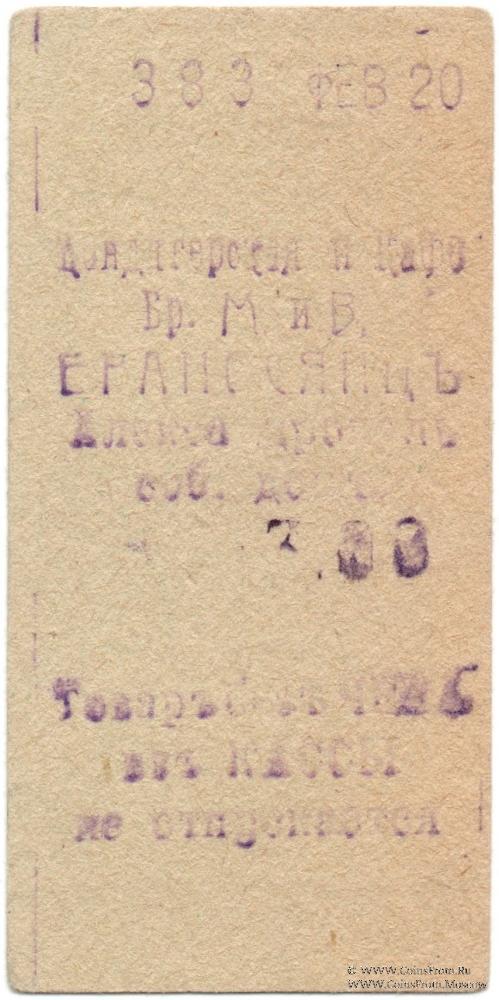 383 ФЕВ 20
Кондитерская и Кафе
Бр. М. и В.
соб. домъ
3.00
Товаръ безъ чека
изъ КАССЫ
не отпускается
© www.CoinsFrom.Ru
www.CoinsFrom.Moscow